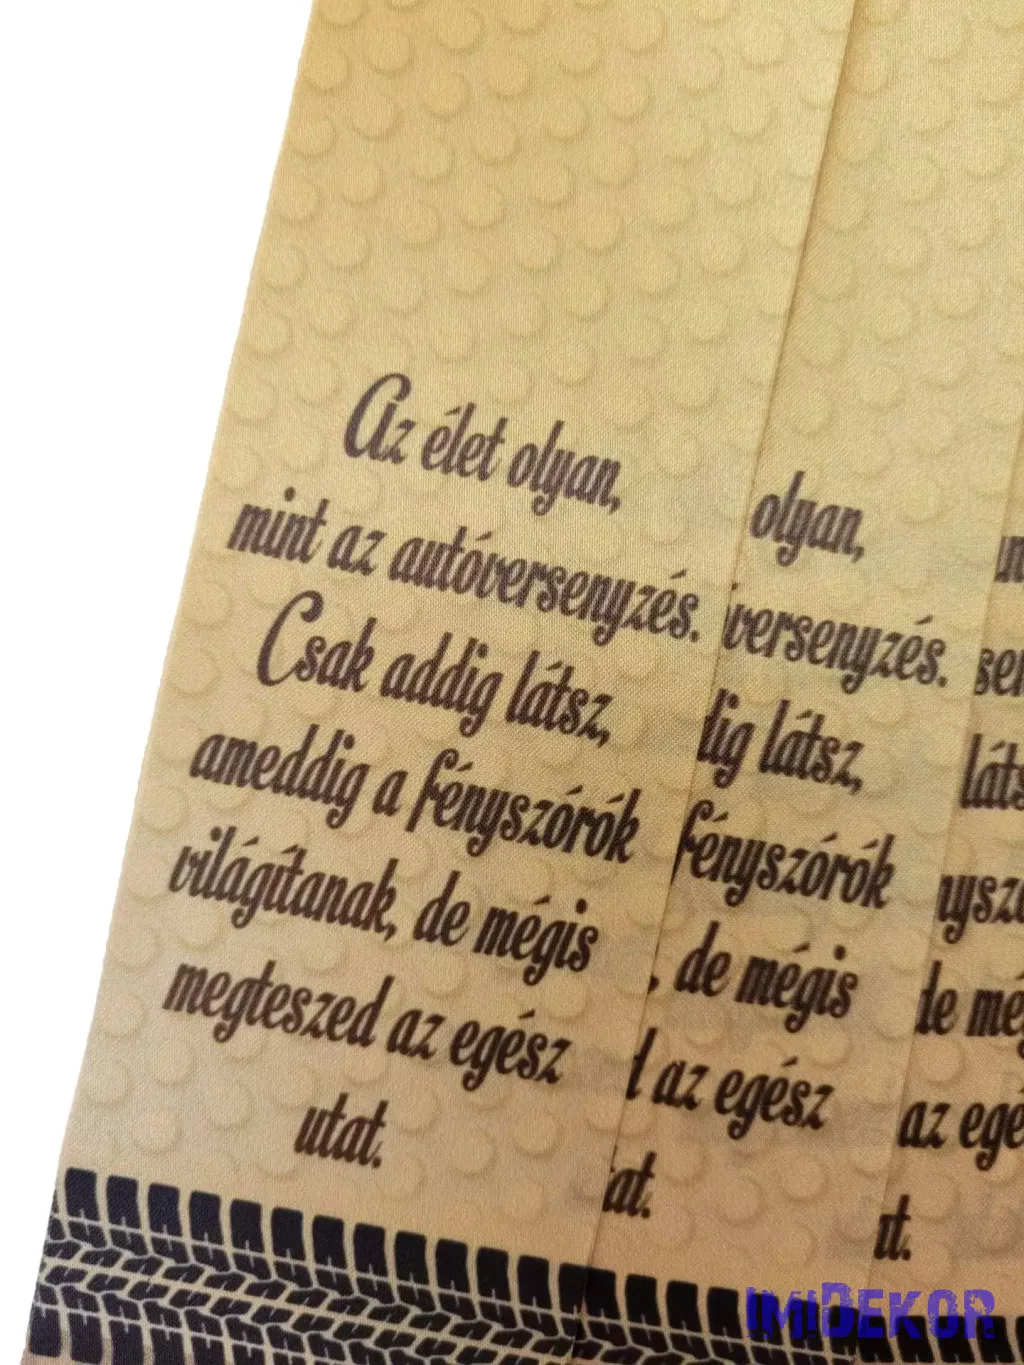 Az élet olyan,
mint az autóversenyzés.
Csak addig látsz,
ameddig a fényszórók
világítanak, de mégis
megteszed az egész
utat.
olyan,
versenyzés.
látsz,
fényszórók
, de mégis
az egész
az
IMIDEKOR